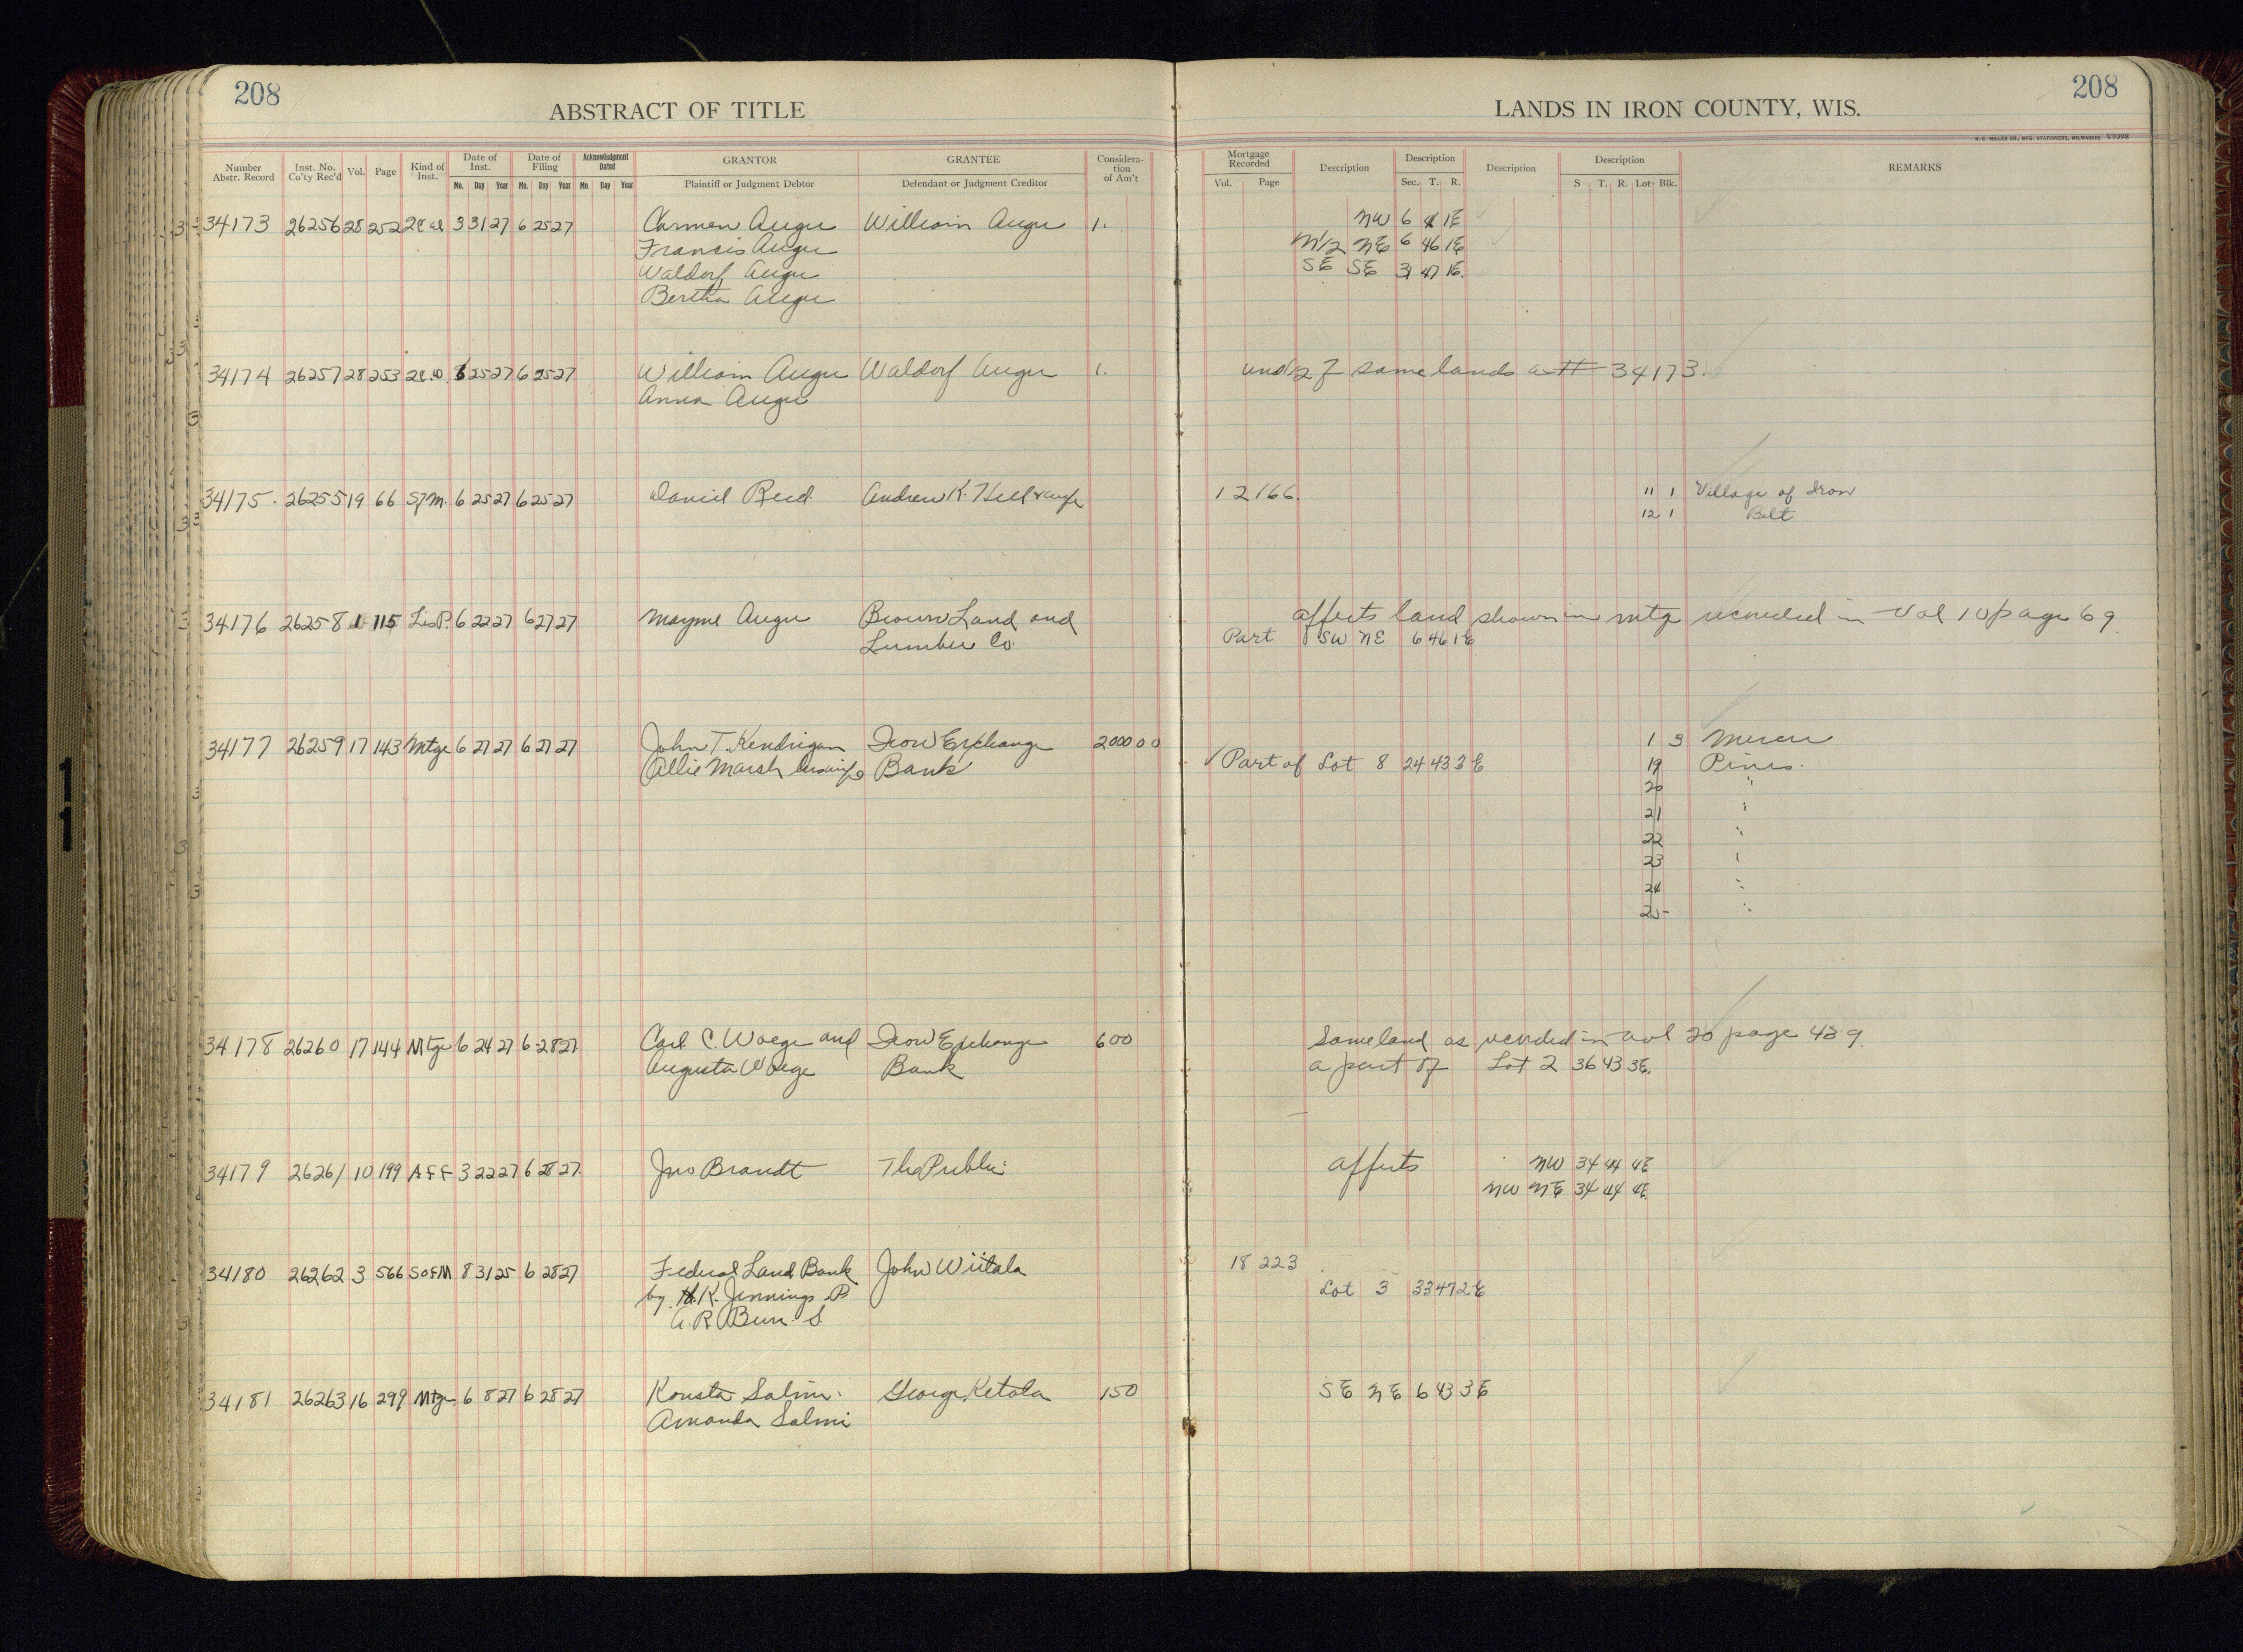 208
208
ABSTRACT OF TITLE
LANDS IN IRON COUNTY, WIS.
H. C. MILLER CO., MFG. STATIONERS, MILWAUKEE Y9398
Number Abstr. Record Inst. No. Co'ty Rec'd Vol. Page Kind of Inst. Date of Inst. Mo. Day Year Date of Filing Mo. Day Year Acknowledgment Dated Mo. Day Year GRANTOR Plaintiff or Judgment Debtor GRANTEE Defendant or Judgment Creditor Consideration of Am't Mortgage Recorded Vol. Page Description Description Sec. T. R. Description Description S T. R. Lot Blk. REMARKS
34173 26256 28 252 2d 3 31 27 6 25 27 Carmen Augu William Augu 1. NW 6 46 1E
Francis Augu N1/2 NE 6 46 1E
Waldorf Augu SE SE 31 47 1E.
Bertha Augu
34174 26257 28 253 6 25 27 6 25 27 William Augu Waldorf Augu 1. und 1/2 of same lands as # 34173.
Anna Augu
34175 26255 19 66 S/M. 6 25 27 6 25 27 Daniel Reid Andrew K. 12 166 11 1 Village of Iron
12 1 Belt
34176 26258 1 115 Lis P. 6 22 27 6 27 27 Mayme Augu Brown Land and affects land shown in mtge recorded in Vol 10 page 69
Lumber Co. Part SW NE 6 46 1E
34177 26259 17 143 Mtge 6 27 27 6 27 27 John T. Kendrigan Iron Exchange 2000 00 1 3 Mercer
Allie Marsh Bank Part of Lot 8 24 43 3E 19 Pines.
20 "
21 "
22 "
23 "
24 "
25 "
34178 26260 17 144 Mtge 6 24 27 6 28 27 Carl C. Woege and Iron Exchange 600 Same land as recorded in vol 20 page 439
Augusta Woege Bank a part of Lot 2 36 43 3E.
34179 26261 10 199 Aff 3 22 27 6 28 27. Jno Brandt The Public affects NW 34 44 4E
NW NE 34 44 4E.
34180 26262 3 566 S of M 8 31 25 6 28 27 Federal Land Bank John Wiitala 18 223
by H. K. Jennings P Lot 3 33 47 2E
A. R. S
34181 26263 16 299 Mtge 6 8 27 6 28 27 Konsta Salmi George Ketola 150 SE NE 6 43 3E
Amanda Salmi